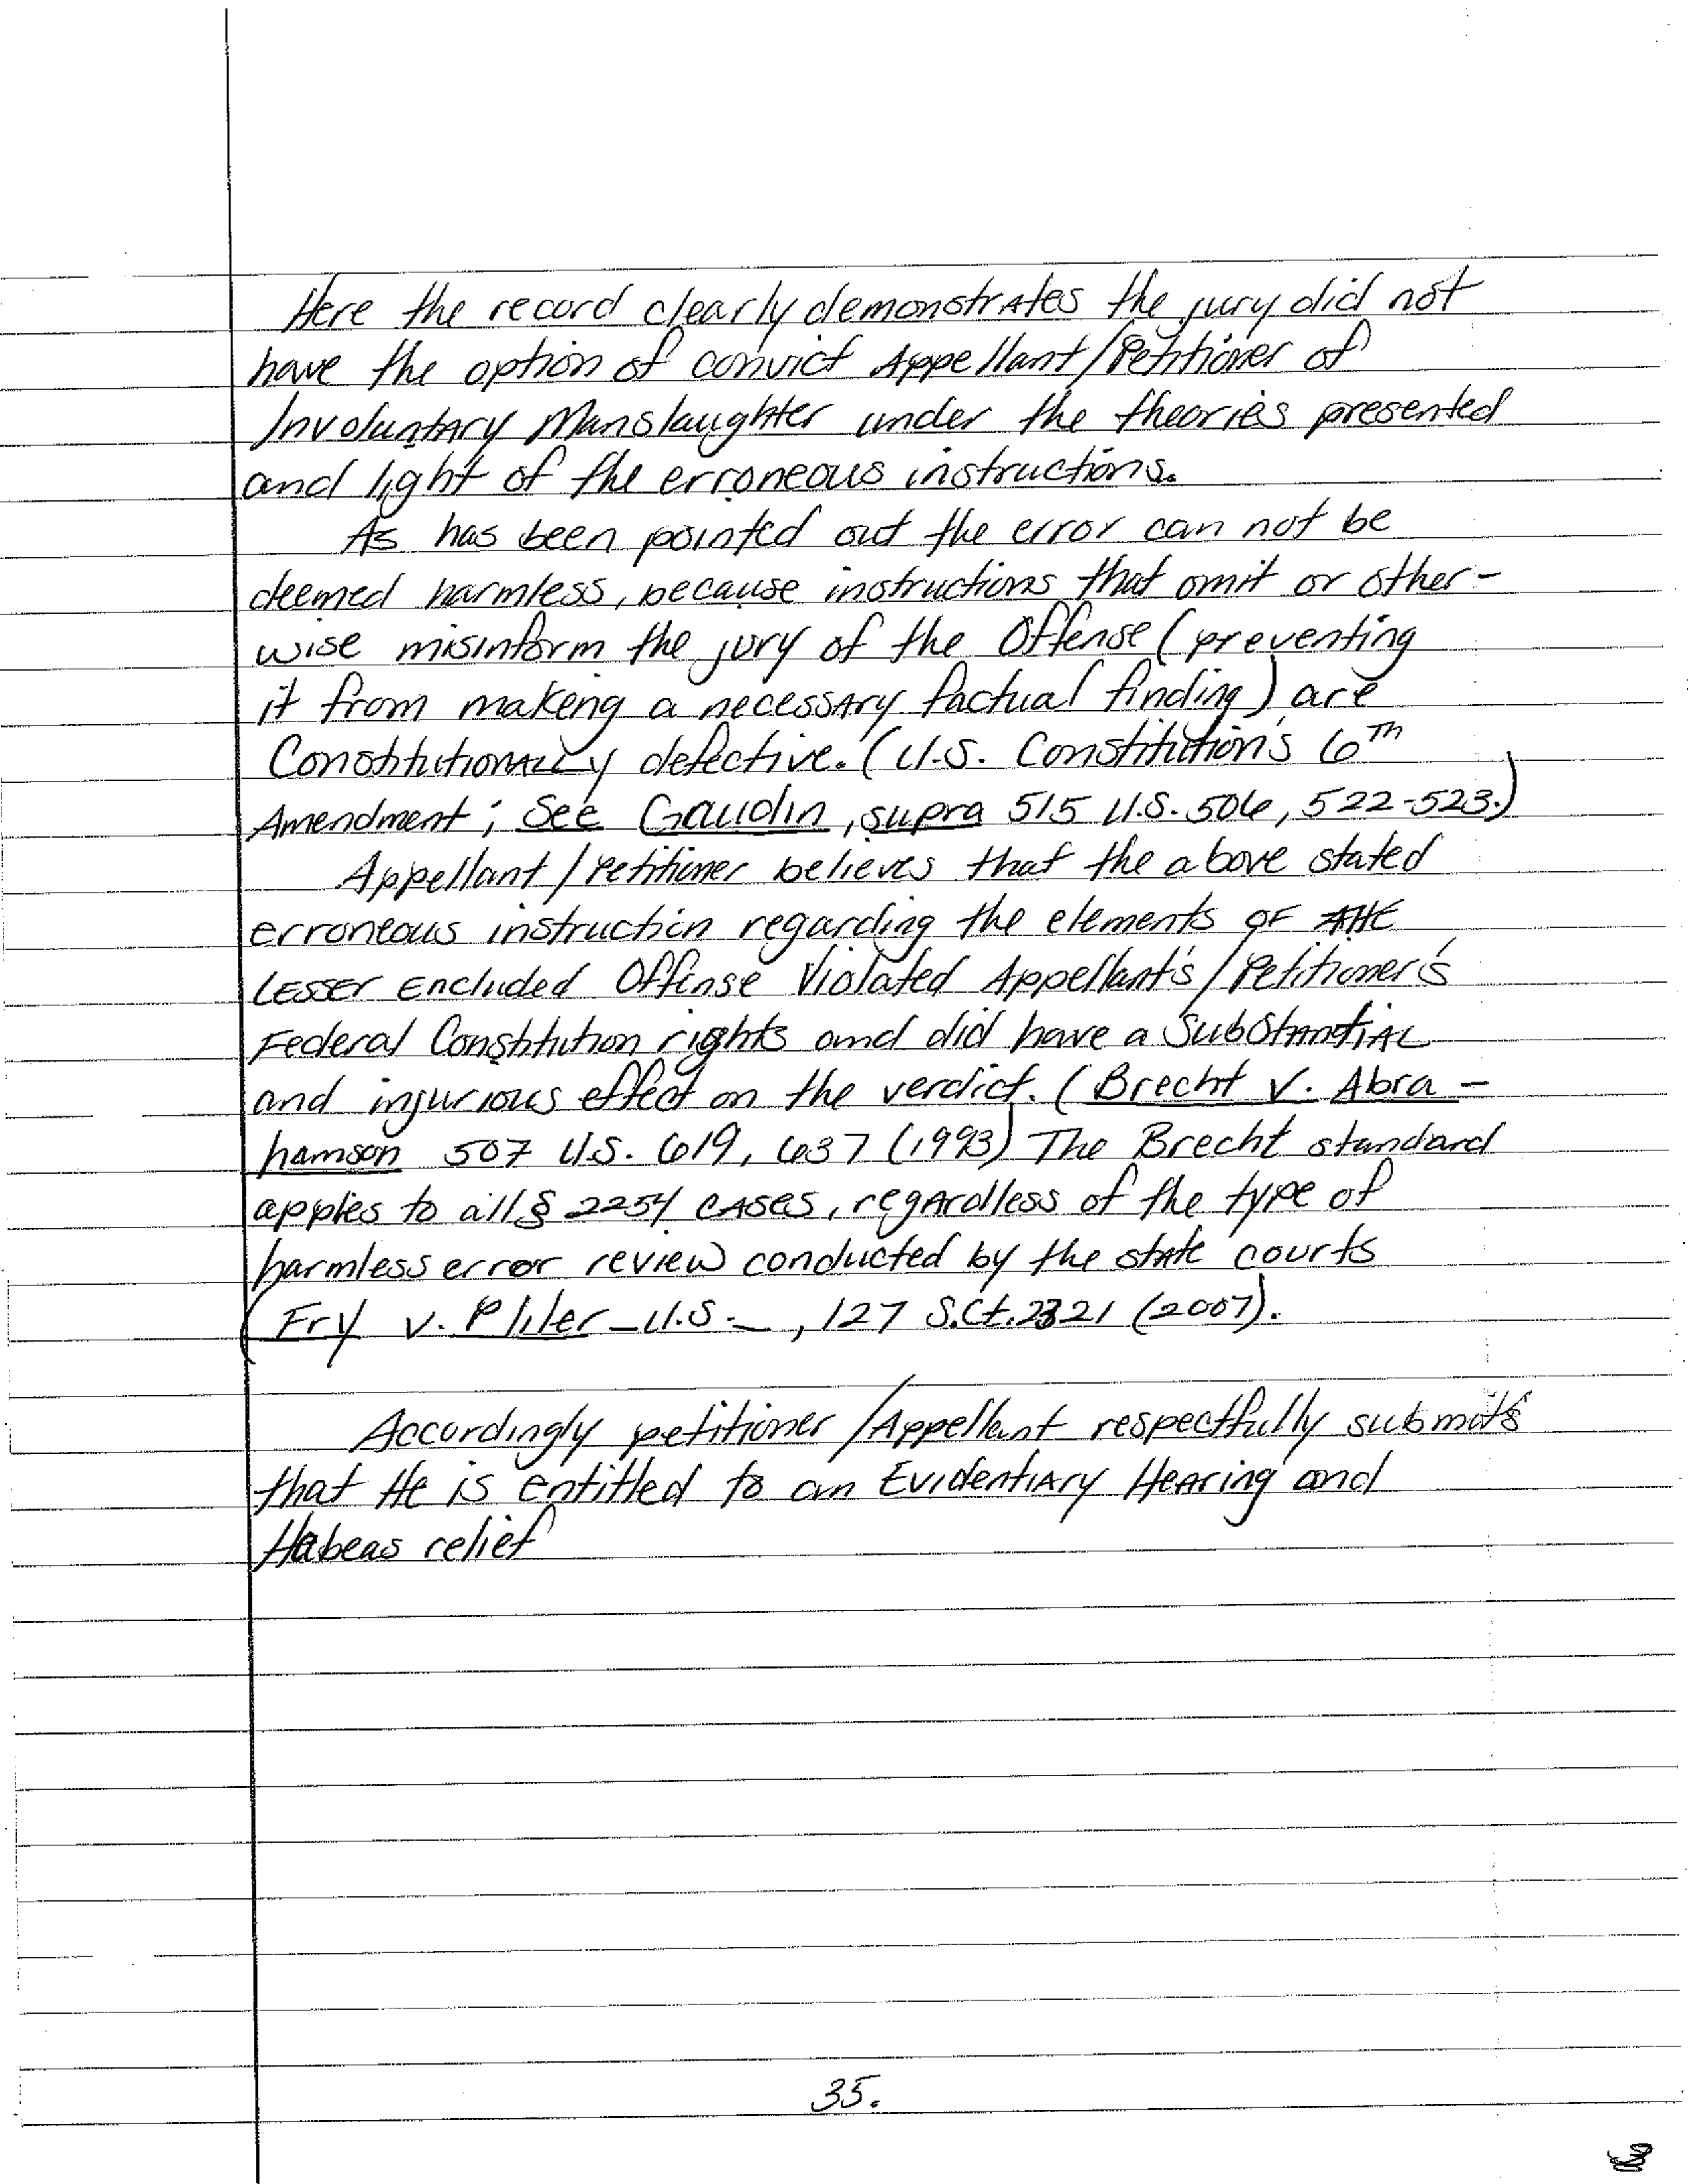 Here the record clearly demonstrates the jury did not
have the option of convict Appellant/Petitioner of
Involuntary Manslaughter under the theories presented
and light of the erroneous instructions.
As has been pointed out the error can not be
deemed harmless, because instructions that omit or other-
wise misinform the jury of the Offense (preventing
it from makeng a necessary factual finding) are
Constitutionally defective. (U.S. Constitution's 6th
Amendment; See Gaudin, supra 515 U.S. 506, 522-523.)
Appellant/Petitioner believes that the above stated
erroneous instruction regarding the elements OF THE
LESSER Encluded Offense Violated Appellant's/Petitioner's
Federal Constitution rights and did have a SubStantiAL
and injurious effect on the verdict. (Brecht v. Abra-
hamson 507 U.S. 619, 637 (1993) The Brecht standard
applies to all § 2254 cases, regardless of the type of
harmless error review conducted by the state courts
(Fry v. Pliler _ U.S. _, 127 S.Ct. 2321 (2007).
Accordingly petitioner/Appellant respectfully submits
that He is entitled to an Evidentiary Hearing and
Habeas relief
35.